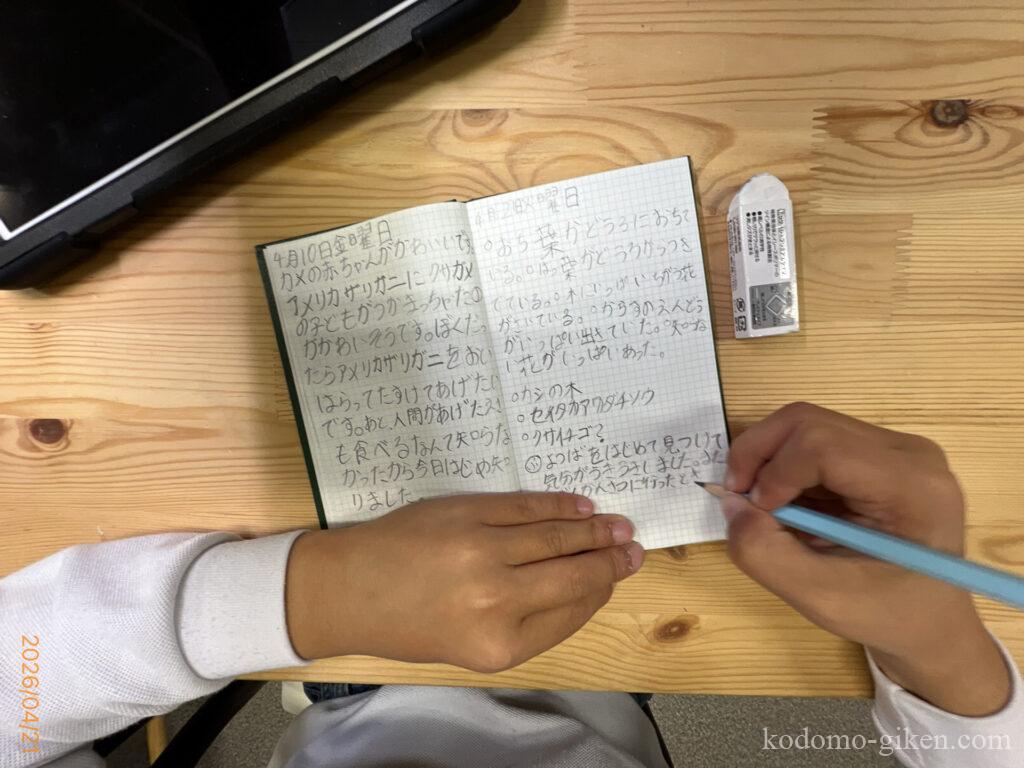 4月10日金曜日
カメの赤ちゃんがかわいいです。
アメリカザリガニにクサガメ
の子どもがつかまっちゃたの
がかわいそうです。ぼくだっ
たらアメリカザリガニをおい
はらってたすけてあげたい
です。あと、人間があげたエサ
も食べるなんて知らな
かったから今日はじめ知
りました。
4月21日火曜日
おち葉がどうろにおちて
いる。はっ葉がとうろがつき
ている。木にいっぱいちがう花
がさいている。からすのえんどう
がいっぱい出きていた。知らな
い花がいっぱいあった。
カシの木
セイタカアワダチソウ
クサイチゴ?
よつばをはじめて見つけて
気分がうきうきしました。また
かんさつに行ったと
2026/04/21
kodomo-giken.com